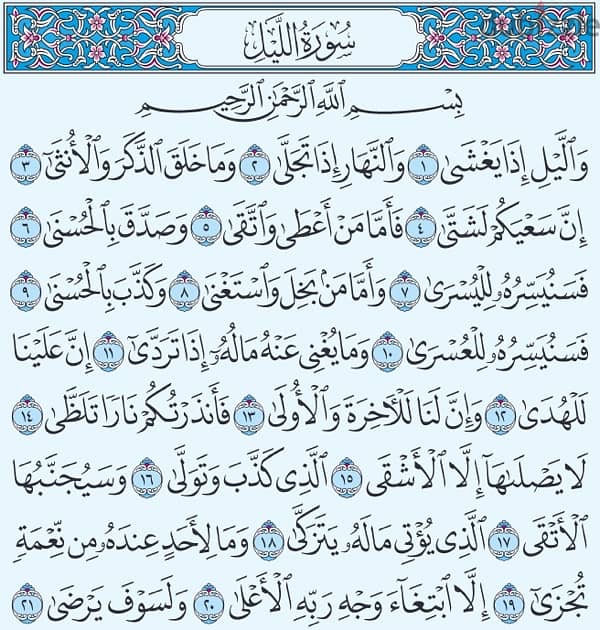 سُورَةُ اللَّيْلِ
بِسْمِ ٱللَّهِ ٱلرَّحْمَٰنِ ٱلرَّحِيمِ
وَٱلَّيْلِ إِذَا يَغْشَىٰ ١ وَٱلنَّهَارِ إِذَا تَجَلَّىٰ ٢ وَمَا خَلَقَ ٱلذَّكَرَ وَٱلْأُنثَىٰٓ ٣
إِنَّ سَعْيَكُمْ لَشَتَّىٰ ٤ فَأَمَّا مَنْ أَعْطَىٰ وَٱتَّقَىٰ ٥ وَصَدَّقَ بِٱلْحُسْنَىٰ ٦
فَسَنُيَسِّرُهُۥ لِلْيُسْرَىٰ ٧ وَأَمَّا مَنۢ بَخِلَ وَٱسْتَغْنَىٰ ٨ وَكَذَّبَ بِٱلْحُسْنَىٰ ٩
فَسَنُيَسِّرُهُۥ لِلْعُسْرَىٰ ١٠ وَمَا يُغْنِى عَنْهُ مَالُهُۥٓ إِذَا تَرَدَّىٰٓ ١١ إِنَّ عَلَيْنَا
لَلْهُدَىٰ ١٢ وَإِنَّ لَنَا لَلْءَاخِرَةَ وَٱلْأُولَىٰ ١٣ فَأَنذَرْتُكُمْ نَارًا تَلَظَّىٰ ١٤
لَا يَصْلَىٰهَآ إِلَّا ٱلْأَشْقَى ١٥ ٱلَّذِى كَذَّبَ وَتَوَلَّىٰ ١٦ وَسَيُجَنَّبُهَا
ٱلْأَتْقَى ١٧ ٱلَّذِى يُؤْتِى مَالَهُۥ يَتَزَكَّىٰ ١٨ وَمَا لِأَحَدٍ عِندَهُۥ مِن نِّعْمَةٍ
تُجْزَىٰٓ ١٩ إِلَّا ٱبْتِغَآءَ وَجْهِ رَبِّهِ ٱلْأَعْلَىٰ ٢٠ وَلَسَوْفَ يَرْضَىٰ ٢١